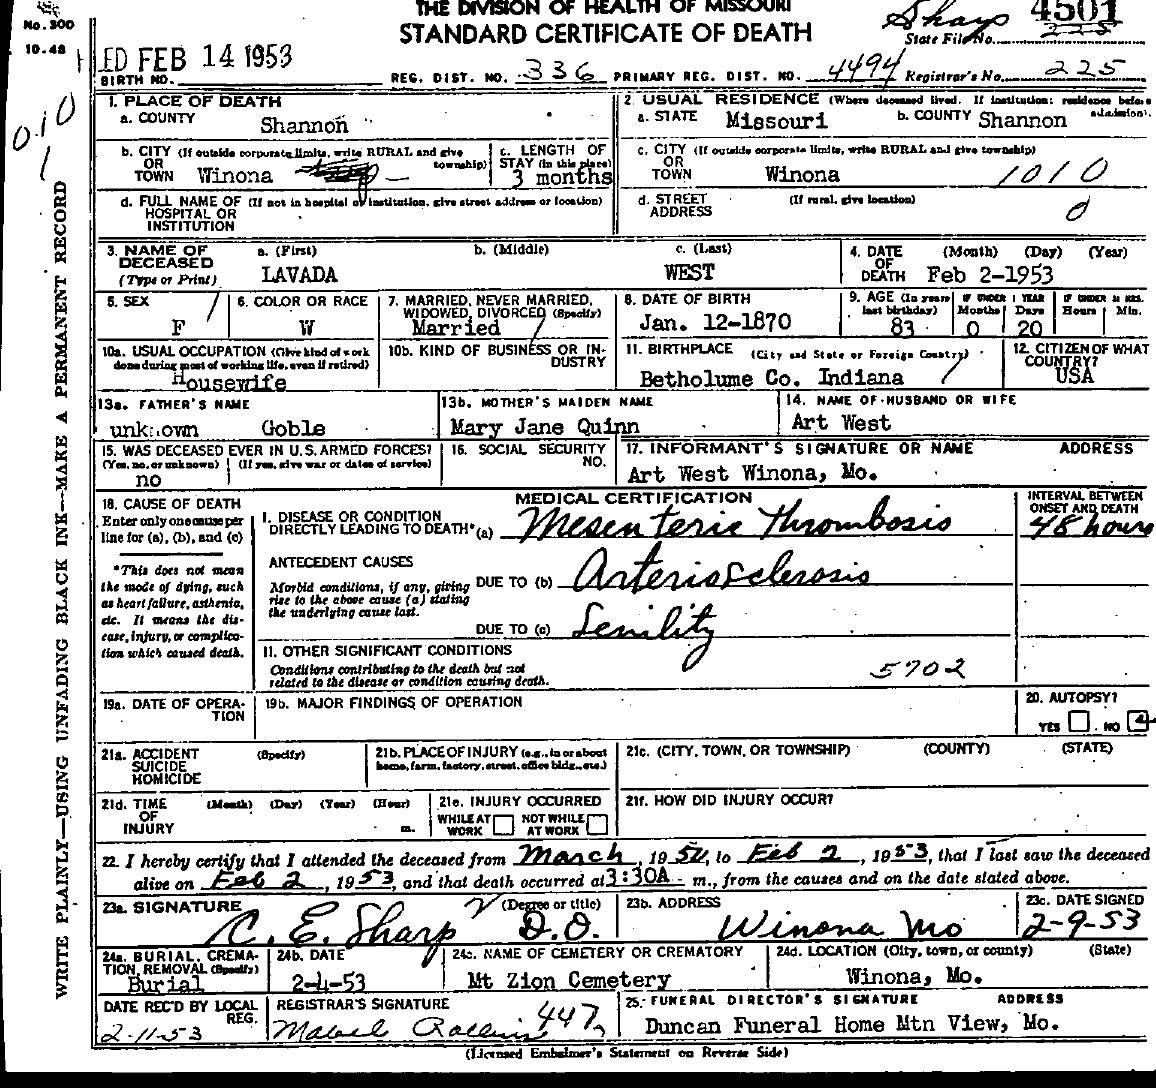 THE DIVISION OF HEALTH OF MISSOURI
STANDARD CERTIFICATE OF DEATH
No. 300
10-48
Sharp 4501
State File No. 225
ED FEB 14 1953
BIRTH NO. REG. DIST. NO. 336 PRIMARY REG. DIST. NO. 4494 Registrar's No. 225
010
1
WRITE PLAINLY—USING UNFADING BLACK INK—MAKE A PERMANENT RECORD
1. PLACE OF DEATH
a. COUNTY Shannon
2. USUAL RESIDENCE (Where deceased lived. If institution: residence before admission).
a. STATE Missouri b. COUNTY Shannon
b. CITY (If outside corporate limits, write RURAL and give township)
OR
TOWN Winona
c. LENGTH OF
STAY (in this place)
3 months
c. CITY (If outside corporate limits, write RURAL and give township)
OR
TOWN Winona 1010
d. FULL NAME OF (If not in hospital or institution, give street address or location)
HOSPITAL OR
INSTITUTION
d. STREET (If rural, give location)
ADDRESS 0
3. NAME OF
DECEASED
(Type or Print)
a. (First) b. (Middle) c. (Last)
LAVADA WEST
4. DATE (Month) (Day) (Year)
OF
DEATH Feb 2-1953
5. SEX
F
6. COLOR OR RACE
W
7. MARRIED, NEVER MARRIED,
WIDOWED, DIVORCED (Specify)
Married
8. DATE OF BIRTH
Jan. 12-1870
9. AGE (In years
last birthday)
83
IF UNDER 1 YEAR
Months Days
0 20
IF UNDER 24 HRS.
Hours Min.
10a. USUAL OCCUPATION (Give kind of work
done during most of working life, even if retired)
Housewife
10b. KIND OF BUSINESS OR IN-
DUSTRY
11. BIRTHPLACE (City and State or Foreign Country)
Betholume Co. Indiana
12. CITIZEN OF WHAT
COUNTRY?
USA
13a. FATHER'S NAME
unknown Goble
13b. MOTHER'S MAIDEN NAME
Mary Jane Quinn
14. NAME OF HUSBAND OR WIFE
Art West
15. WAS DECEASED EVER IN U.S. ARMED FORCES?
(Yes, no, or unknown) (If yes, give war or dates of service)
no
16. SOCIAL SECURITY
NO.
17. INFORMANT'S SIGNATURE OR NAME ADDRESS
Art West Winona, Mo.
18. CAUSE OF DEATH
Enter only one cause per
line for (a), (b), and (c)
*This does not mean
the mode of dying, such
as heart failure, asthenia,
etc. It means the dis-
ease, injury, or complica-
tion which caused death.
MEDICAL CERTIFICATION
I. DISEASE OR CONDITION
DIRECTLY LEADING TO DEATH*(a) Mesenteric Thrombosis
INTERVAL BETWEEN
ONSET AND DEATH
48 hours
ANTECEDENT CAUSES
Morbid conditions, if any, giving
rise to the above cause (a) stating
the underlying cause last.
DUE TO (b) Arteriosclerosis
DUE TO (c) Senility
II. OTHER SIGNIFICANT CONDITIONS
Conditions contributing to the death but not
related to the disease or condition causing death.
5702
19a. DATE OF OPERA-
TION
19b. MAJOR FINDINGS OF OPERATION
20. AUTOPSY?
YES NO
21a. ACCIDENT (Specify)
SUICIDE
HOMICIDE
21b. PLACE OF INJURY (e.g., in or about
home, farm, factory, street, office bldg., etc.)
21c. (CITY, TOWN, OR TOWNSHIP) (COUNTY) (STATE)
21d. TIME (Month) (Day) (Year) (Hour)
OF
INJURY m.
21e. INJURY OCCURRED
WHILE AT WORK NOT WHILE AT WORK
21f. HOW DID INJURY OCCUR?
22. I hereby certify that I attended the deceased from March, 1952, to Feb 2, 1953, that I last saw the deceased
alive on Feb 2, 1953, and that death occurred at 3:30A m., from the causes and on the date stated above.
23a. SIGNATURE (Degree or title)
C. E. Sharp D.O.
23b. ADDRESS
Winona Mo
23c. DATE SIGNED
2-9-53
24a. BURIAL, CREMA-
TION, REMOVAL (Specify)
Burial
24b. DATE
2-4-53
24c. NAME OF CEMETERY OR CREMATORY
Mt Zion Cemetery
24d. LOCATION (City, town, or county) (State)
Winona, Mo.
DATE REC'D BY LOCAL
REG.
2-11-53
REGISTRAR'S SIGNATURE
Mabel 447
25. FUNERAL DIRECTOR'S SIGNATURE ADDRESS
Duncan Funeral Home Mtn View, Mo.
(Licensed Embalmer's Statement on Reverse Side)